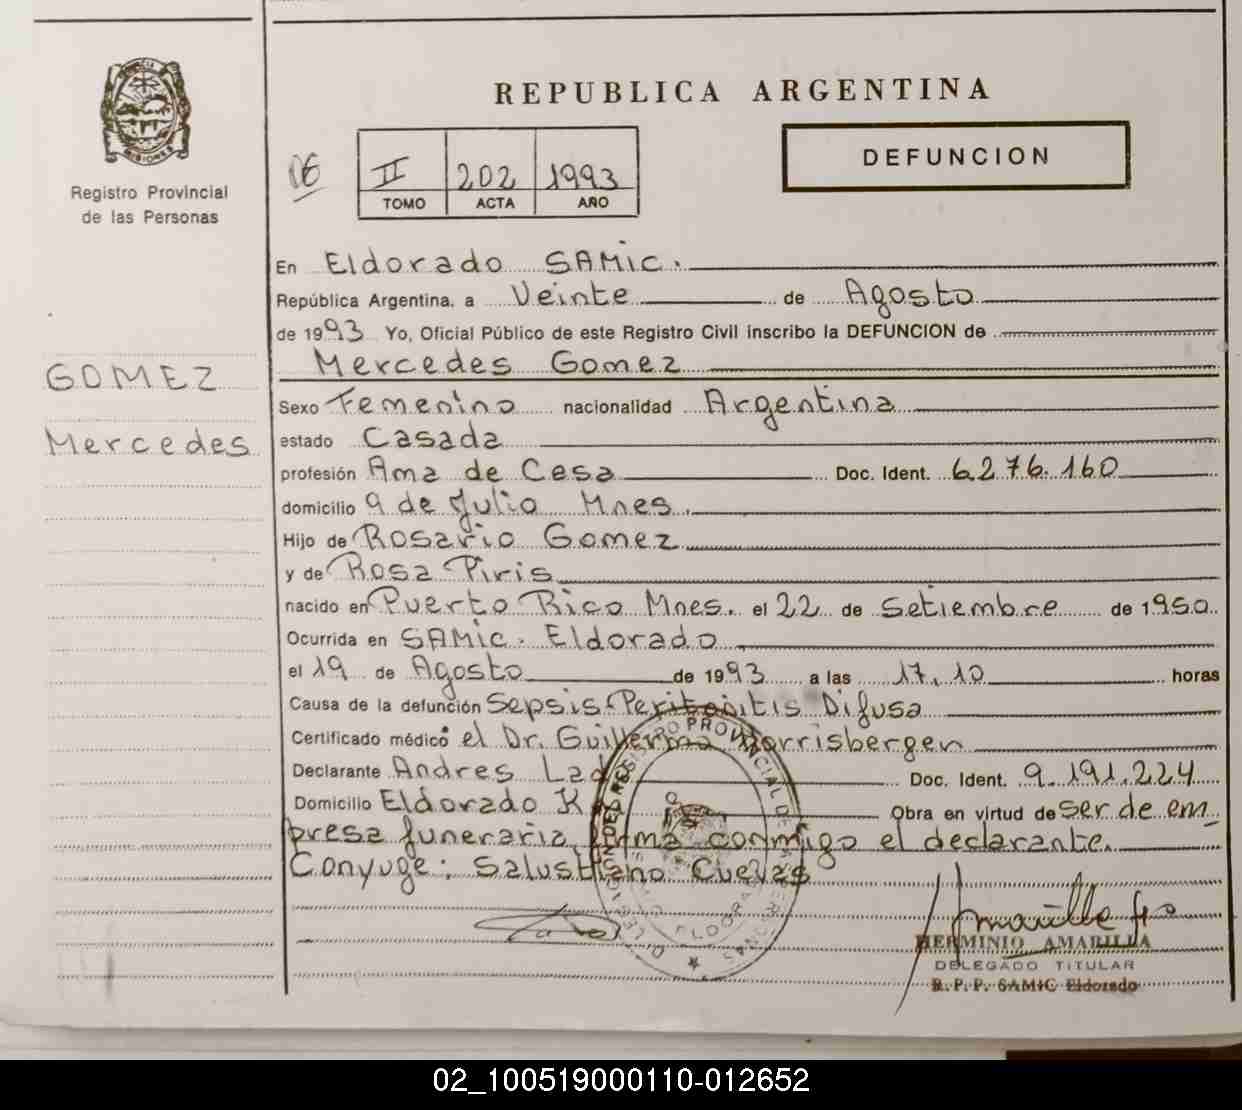 REPUBLICA ARGENTINA
PROVINCIA DE
MISIONES
Registro Provincial
de las Personas
06
II 202 1993
TOMO ACTA AÑO
DEFUNCION
En Eldorado SAMic.
República Argentina, a Veinte de Agosto
de 1993 Yo, Oficial Público de este Registro Civil inscribo la DEFUNCION de
Mercedes Gomez
GOMEZ
Mercedes
Sexo Femenino nacionalidad Argentina
estado Casada
profesión Ama de Cesa Doc. Ident. 6.276.160
domicilio 9 de Julio Mnes.
Hijo de Rosario Gomez
y de Rosa Piris
nacido en Puerto Rico Mnes. el 22 de Setiembre de 1950.
Ocurrida en SAMic. Eldorado
el 19 de Agosto de 1993 a las 17,10 horas
Causa de la defunción Sepsis-Peritonitis Difusa
Certificado médico el Dr. Guillermo Morrisbergen
Declarante Andres Doc. Ident. 9.191.224
Domicilio Eldorado K Obra en virtud de ser de em
presa funeraria, firma conmigo el declarante.
Conyuge: Salustiano Cuevas
REGISTRO PROVINCIAL DE LAS PERSONAS
ELDORADO
HERMINIO AMARILLA
DELEGADO TITULAR
R.P.P. SAMIC Eldorado
02_100519000110-012652